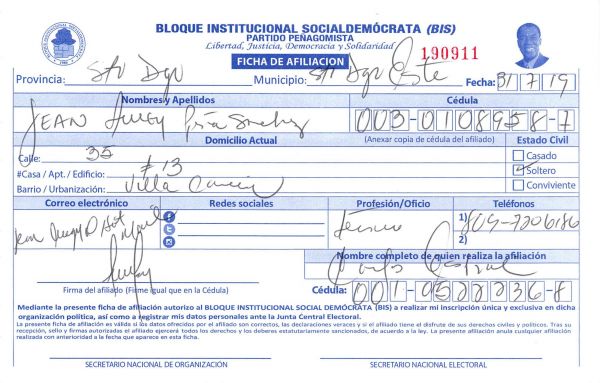 BLOQUE INSTITUCIONAL SOCIALDEMÓCRATA (BIS)
PARTIDO PEÑAGOMISTA
Libertad, Justicia, Democracia y Solidaridad
FICHA DE AFILIACION
190911
Provincia: Sto Dgo Municipio: Sto Dgo Este Fecha: 31/7/19
Nombres y Apellidos Cédula
JEAN Peña Sanchez 003-0108958-7
Domicilio Actual (Anexar copia de cédula del afiliado) Estado Civil
Calle: 35 Casado
#Casa / Apt. / Edificio: #13 Soltero
Barrio / Urbanización: Villa Conviviente
Correo electrónico Redes sociales Profesión/Oficio Teléfonos
Jean 1) 809-7206186
2)
Nombre completo de quien realiza la afiliación
Carlos
Firma del afiliado (Firme igual que en la Cédula) Cédula: 001-0522236-8
Mediante la presente ficha de afiliación autorizo al BLOQUE INSTITUCIONAL SOCIAL DEMÓCRATA (BIS) a realizar mi inscripción única y exclusiva en dicha
organización política, así como a registrar mis datos personales ante la Junta Central Electoral.
La presente ficha de afiliación es válida si los datos ofrecidos por el afiliado son correctos, las declaraciones veraces y si el afiliado tiene el disfrute de sus derechos civiles y políticos. Tras su
recepción, sello y firmas autorizadas el afiliado ejercerá todos los derechos y los deberes estatutariamente sancionados, de acuerdo a la ley. La presente afiliación anula cualquier afiliación
realizada con anterioridad a la fecha que aparece en esta ficha.
SECRETARIO NACIONAL DE ORGANIZACIÓN SECRETARIO NACIONAL ELECTORAL